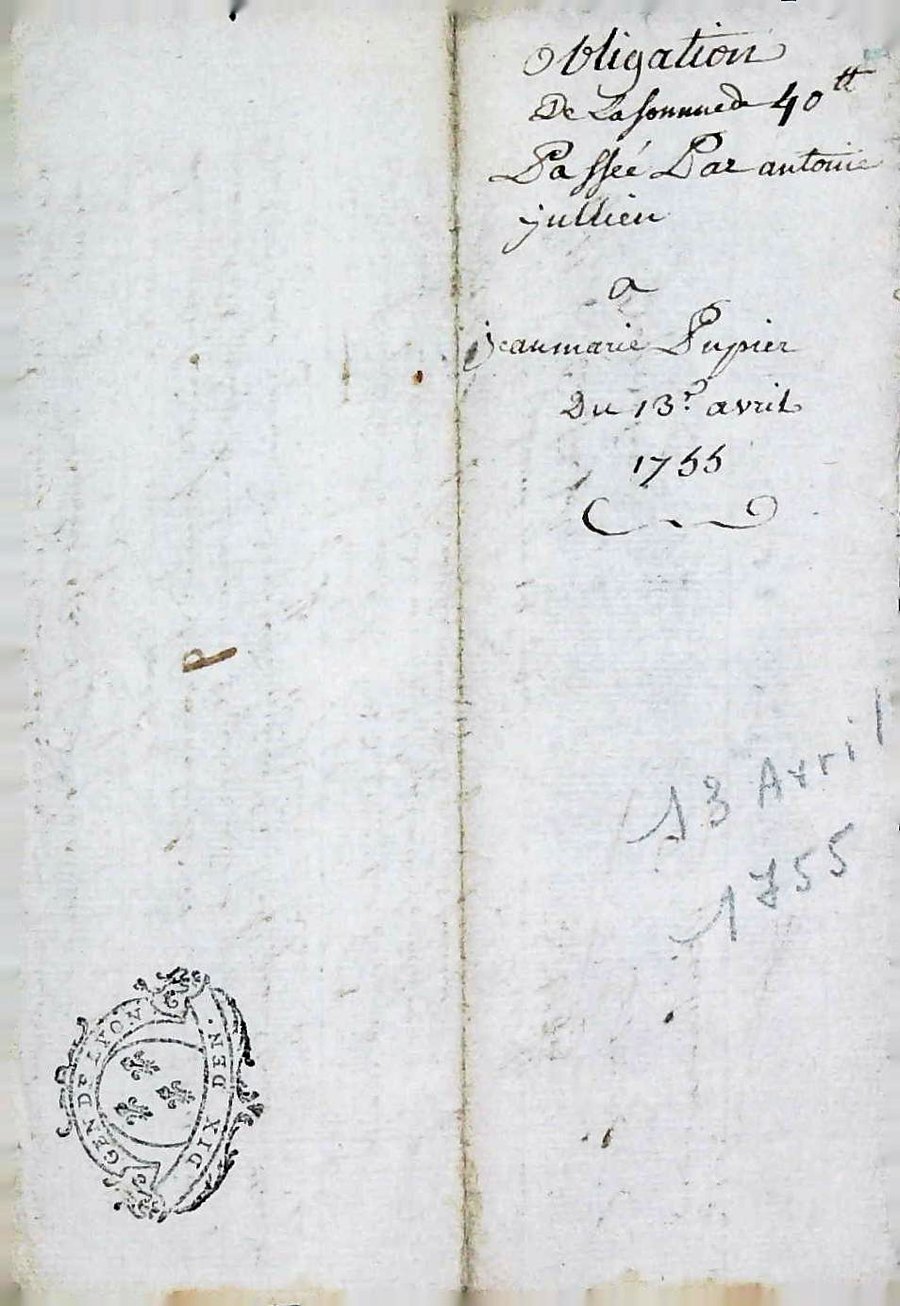 Obligation
De La somme de 40 tt
Passeé Par antoine
jullien
a
jeanmarie Pupier
Du 13e. avril
1755
13 Avril
1755
GEN DE LYON
DIX DEN.